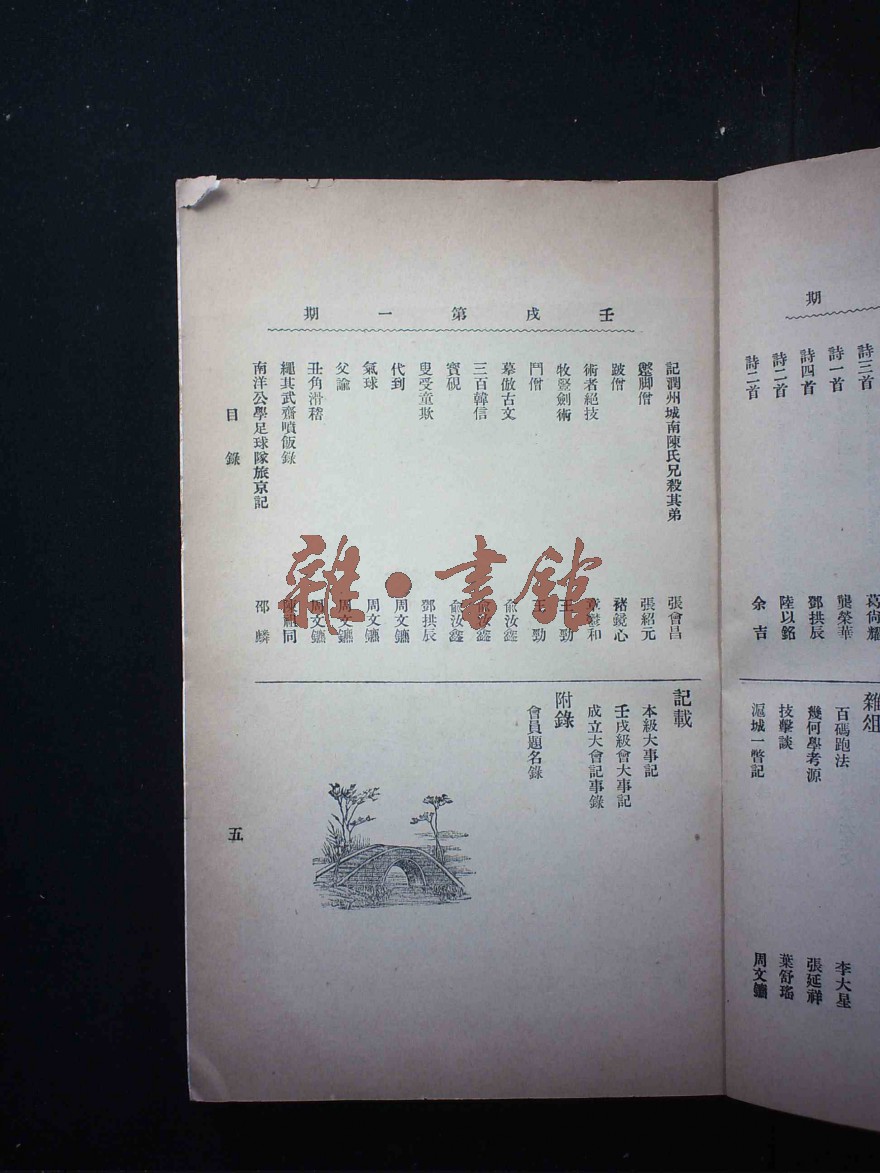 期
詩三首
葛尙耀
詩一首
龔榮華
詩四首
鄧拱辰
詩二首
陸以銘
詩二首
余吉
雜俎
百碼跑法
李大星
幾何學考源
張延祥
技擊談
葉舒瑤
滬城一瞥記
周文鑣
壬戌第一期
記潤州城南陳氏兄殺其弟
張會昌
躄脚僧
張紹元
跛僧
豬鏡心
術者絕技
牧豎劍術
王勁
鬥僧
王勁
摹倣古文
俞汝鑫
三百韓信
俞汝鑫
寶硯
俞汝鑫
叟受童欺
鄧拱辰
代到
周文鑣
氣球
周文鑣
父諭
周文鑣
丑角滑稽
周文鑣
繩其武齋噴飯錄
南洋公學足球隊旅京記
邵麟
記載
本級大事記
壬戌級會大事記
成立大會記事錄
附錄
會員題名錄
目錄
五
雜·書館